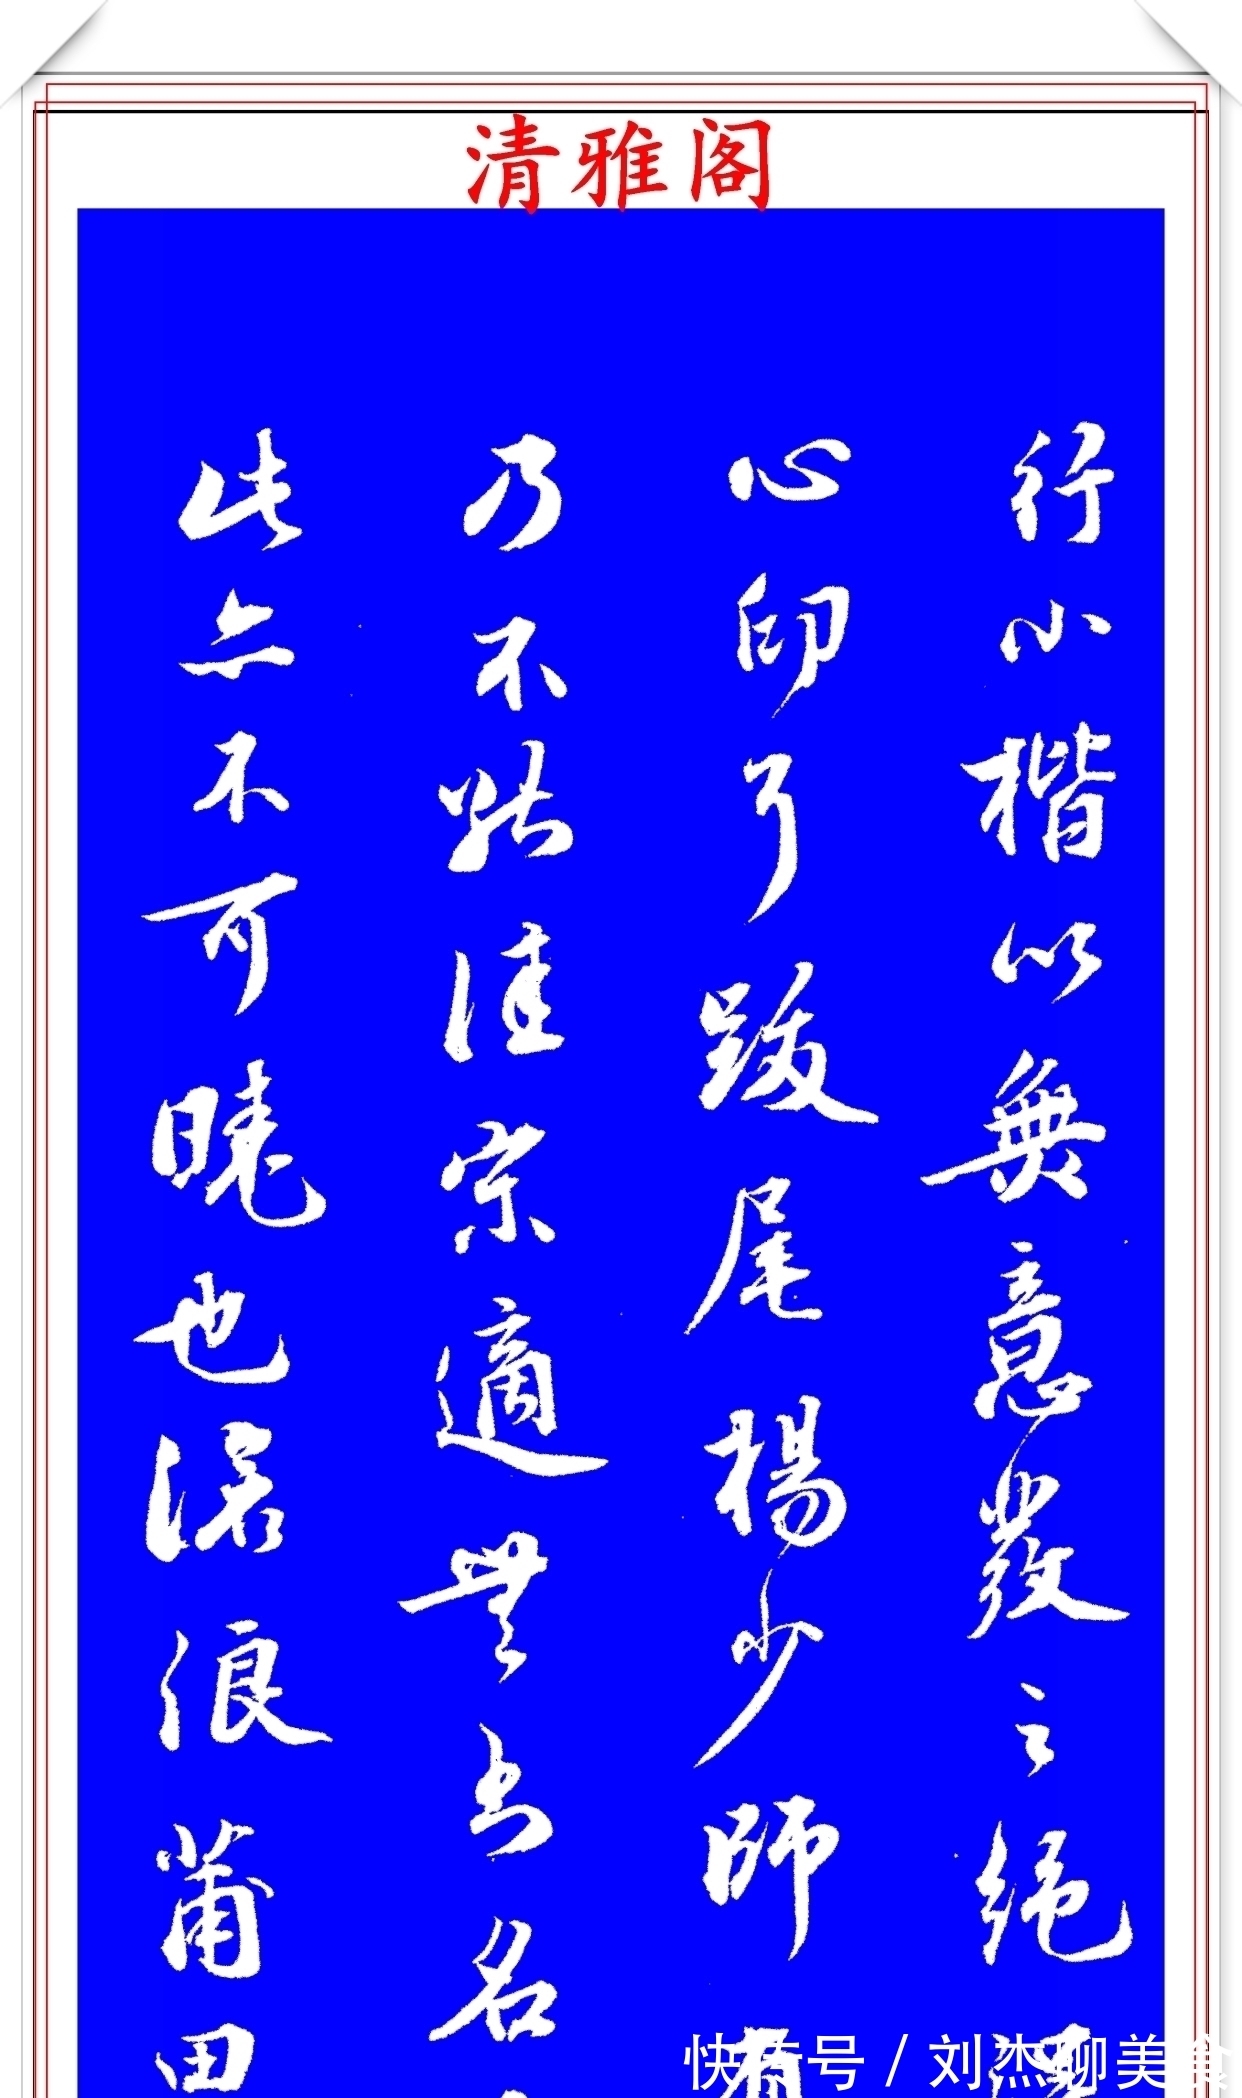 清雅阁
行小楷以無意發之絕
心印乃跋尾楊少師
乃不能佳宗適無書名
此亦不可曉也
浪莆田
快传号 / 刘杰聊美食